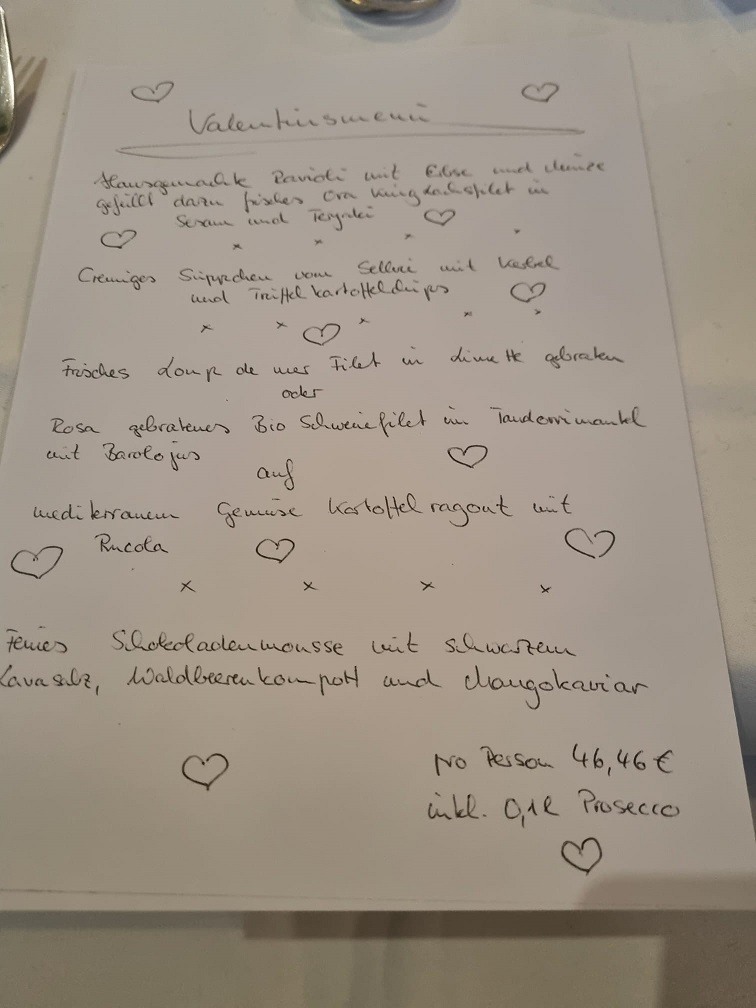 Valentinsmenü
Hausgemachte Ravioli mit Erbse und Minze
gefüllt dazu frisches Ora Kinglachsfilet in
Sesam und Teryaki
Cremiges Süppchen vom Sellerie mit Kerbel
und Trüffelkartoffelchips
Frisches Loup de mer Filet in Limette gebraten
oder
Rosa gebratenes Bio Schweinefilet im
mit Barolojus
auf
mediterranem Gemüse Kartoffelragout mit
Rucola
Feines Schokoladenmousse mit schwarzem
Lavasalz, Waldbeerenkompott und Mangokaviar
pro Person 46,46 €
inkl. 0,1l Prosecco